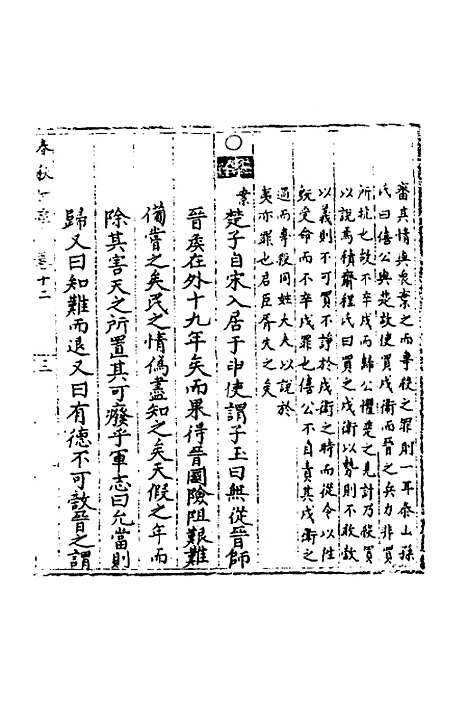 審其情與衆棄之而專殺之罪則一耳泰山孫
氏曰僖公與楚故使買戍衛而晉之矣力非買
所抗也故不卒戍而歸公懼楚之見討乃殺買
以說焉積齋程氏曰買之戍衛以勢則不敢敵
以義則不可買不諍於戍衛之時而從令以往
旣受命而不卒戍罪也僖公不自責其戍衛之
過而專殺同姓大夫以說於
夷亦罪也君臣胥失之矣
案楚子自宋入居于申使謂子玉曰無從晉師
晉矦在外十九年矣而果得晉國險阻艱難
備嘗之矣民之情僞盡知之矣天假之年而
除其害天之所置其可廢乎軍志曰允當則
歸又曰知難而退又曰有德不可敵晉之謂
春秋 卷十二 三